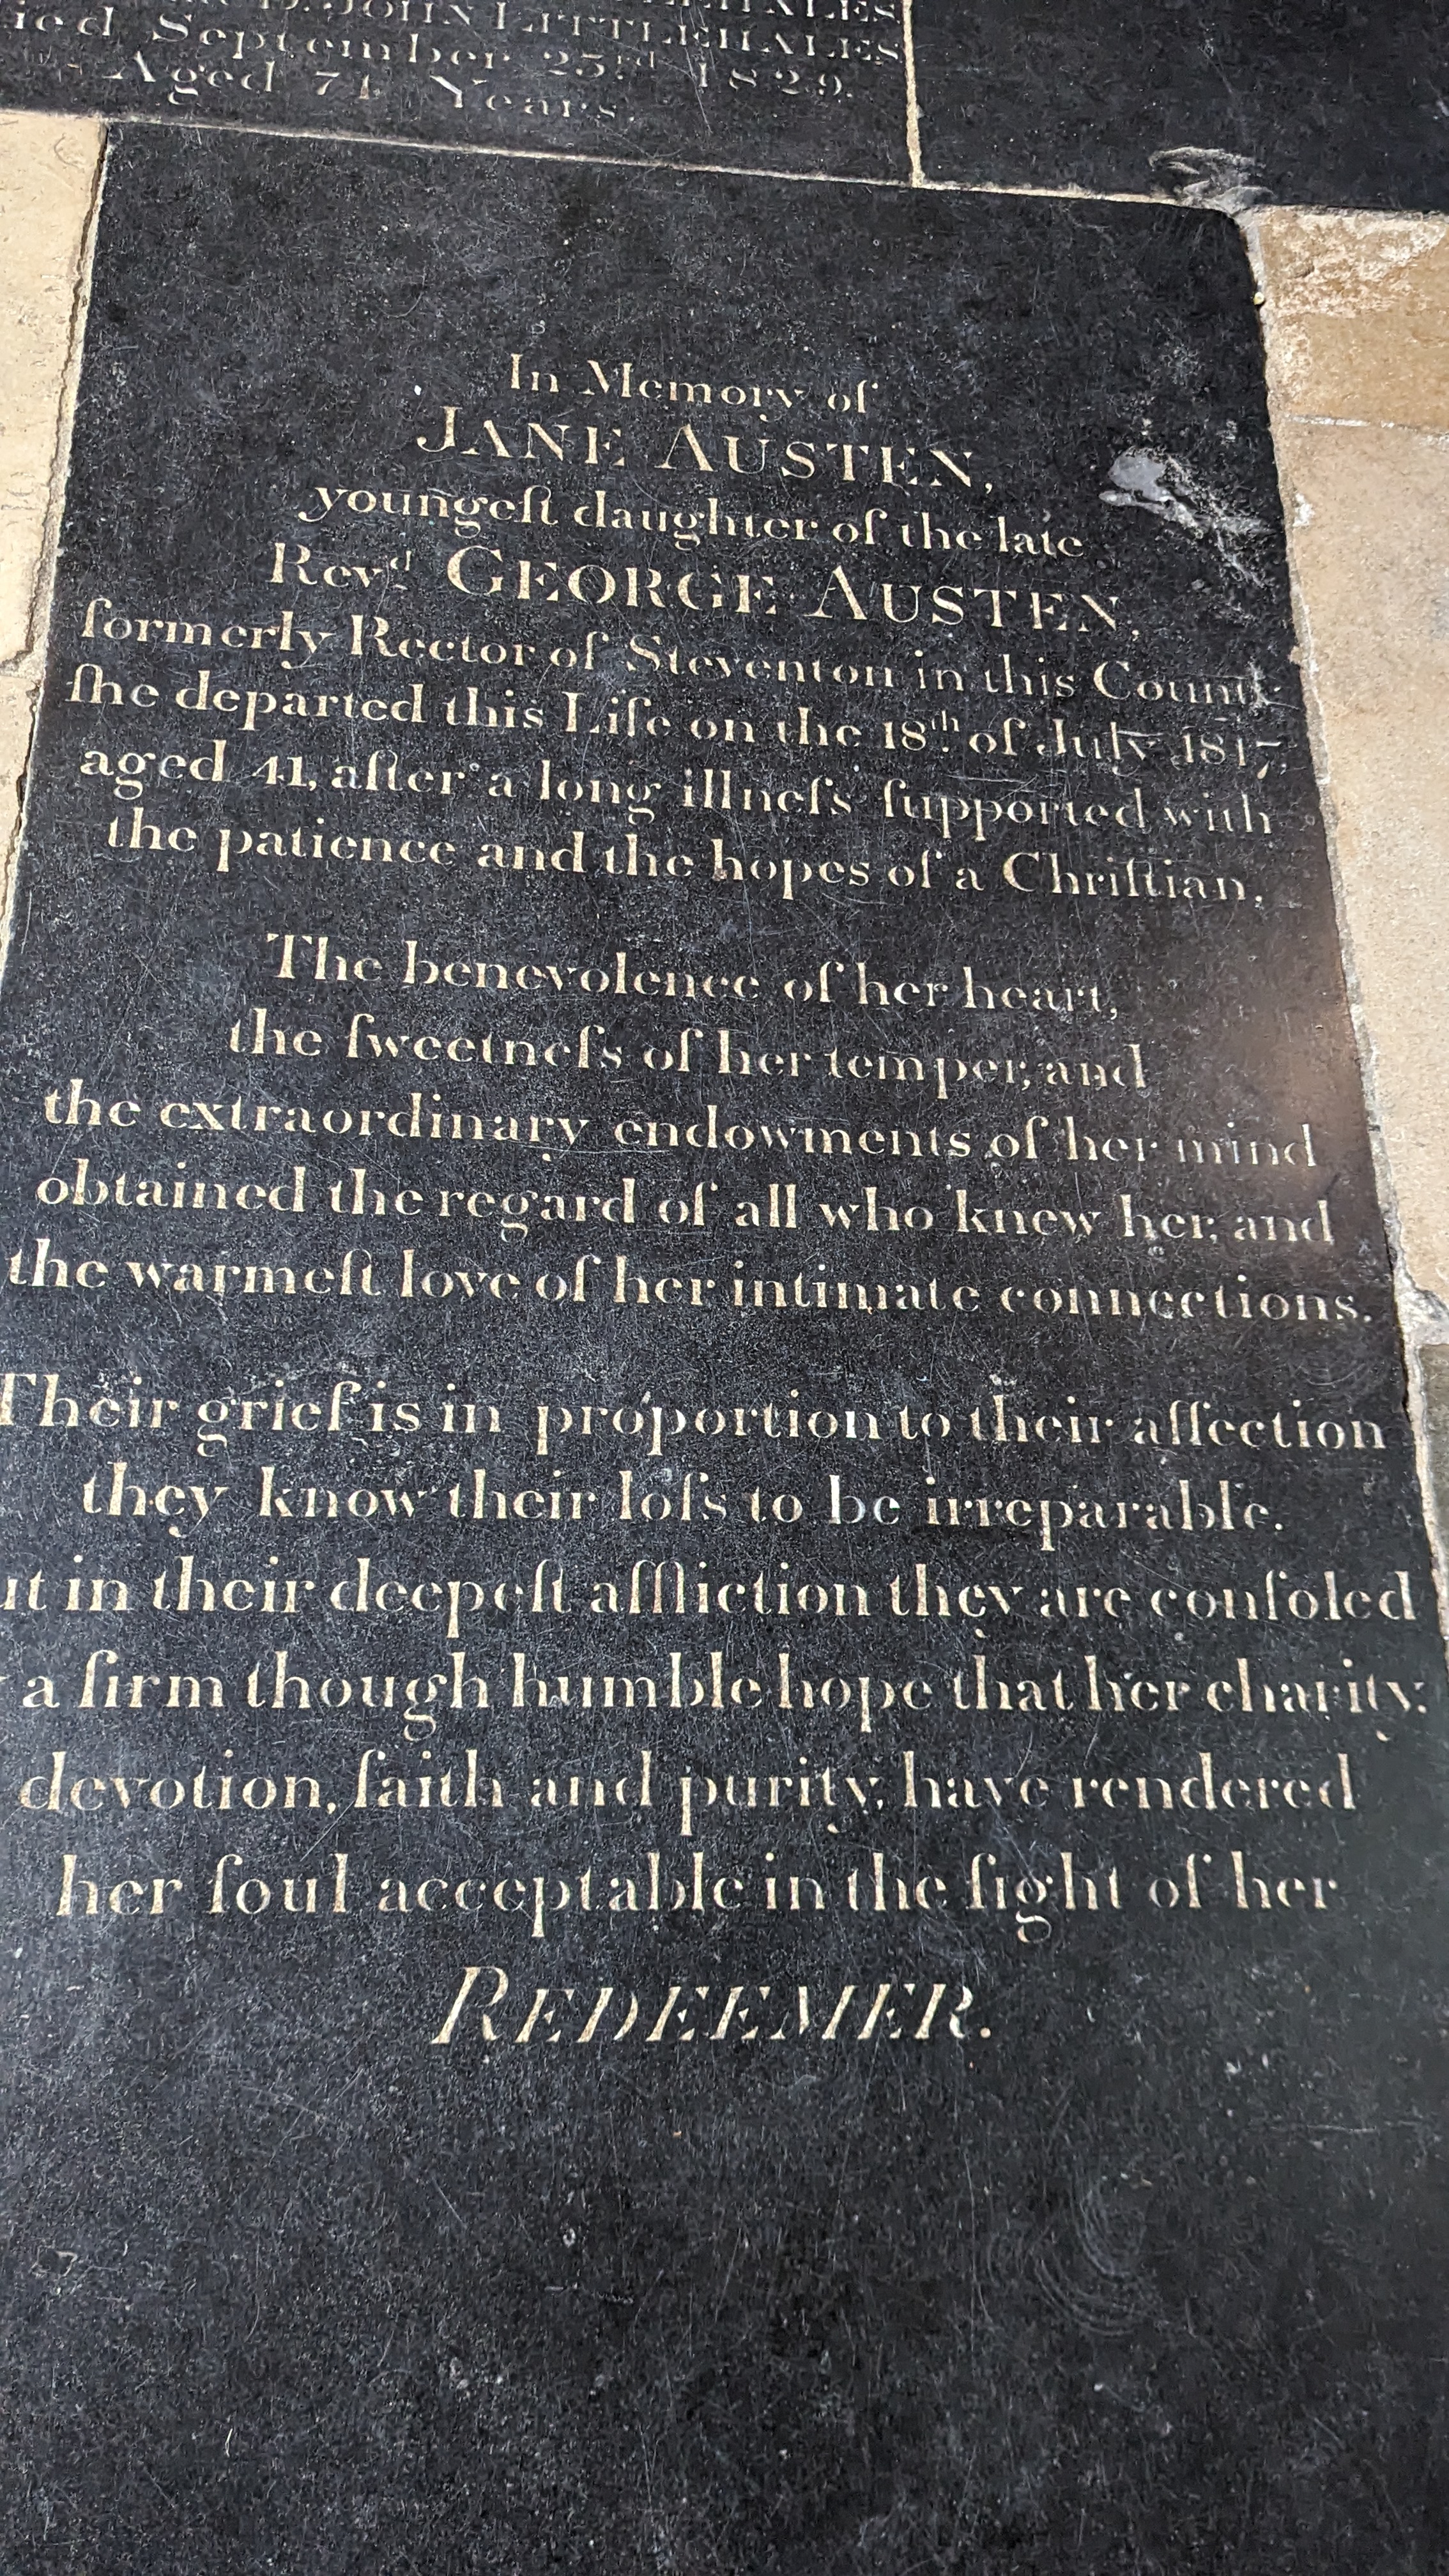 JOHN LITTLEHALES
ied September 23rd 1829.
Aged 74 Years.
In Memory of
JANE AUSTEN,
youngeſt daughter of the late
Revd GEORGE AUSTEN,
formerly Rector of Steventon in this County
ſhe departed this Life on the 18th of July 1817,
aged 41, after a long illneſs ſupported with
the patience and the hopes of a Chriſtian.
The benevolence of her heart,
the ſweetneſs of her temper, and
the extraordinary endowments of her mind
obtained the regard of all who knew her, and
the warmeſt love of her intimate connections.
Their grief is in proportion to their affection
they know their loſs to be irreparable.
ut in their deepeſt affliction they are conſoled
a firm though humble hope that her charity,
devotion, faith and purity, have rendered
her ſoul acceptable in the ſight of her
REDEEMER.